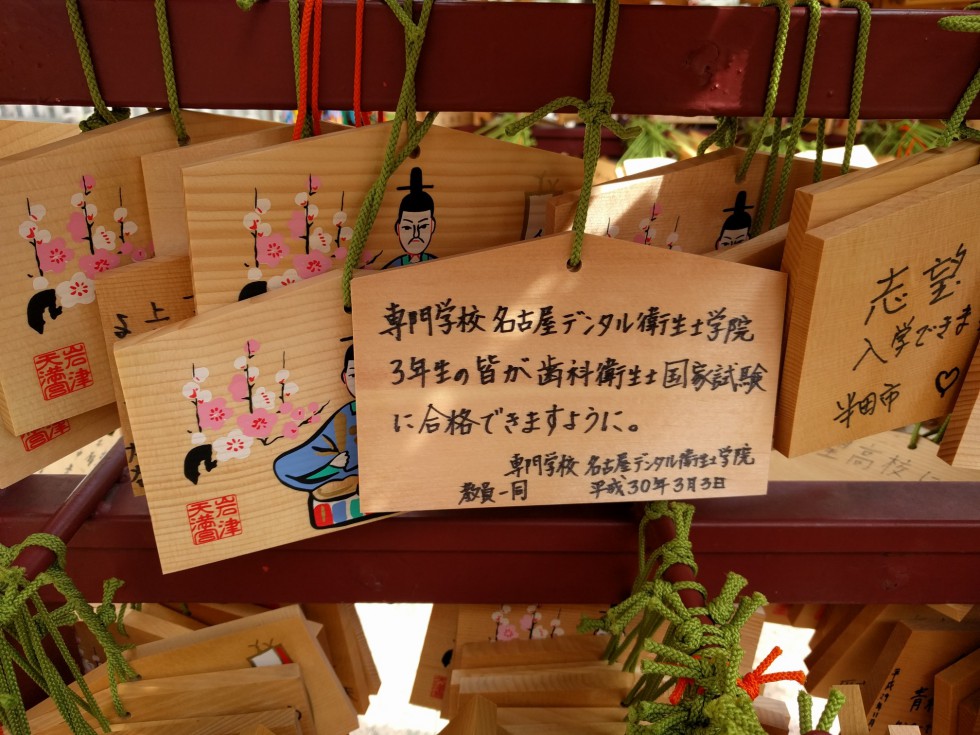 専門学校 名古屋デンタル衛生士学院
3年生の皆が歯科衛生士国家試験
に合格できますように。
専門学校 名古屋デンタル衛生士学院
教員一同 平成30年3月3日
志望
入学できま
半田市
岩津
天満宮
岩津
天満宮